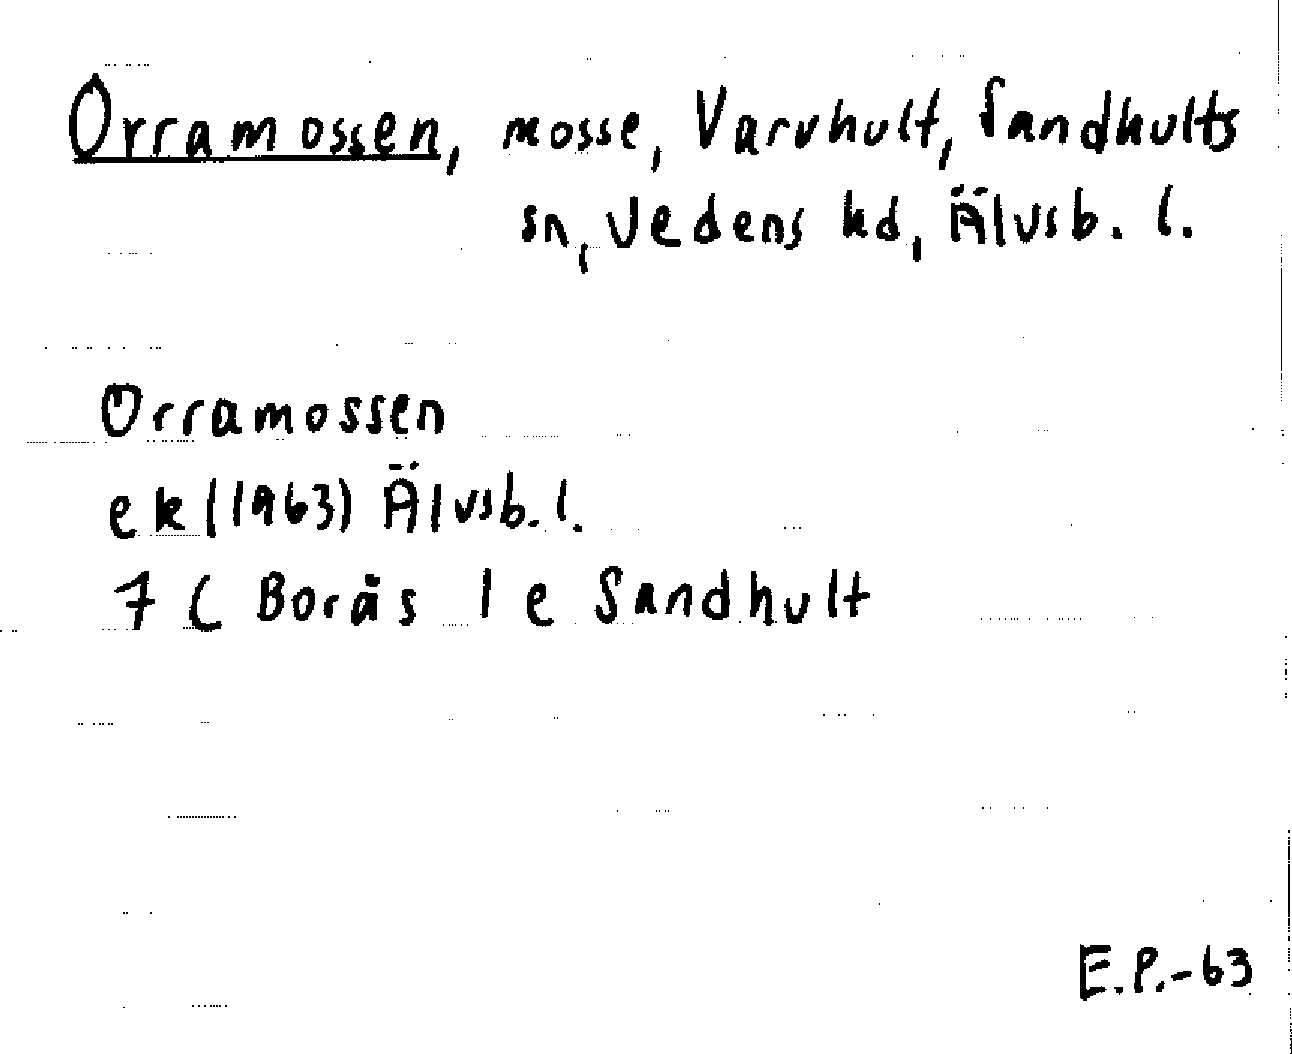 Orramossen, mosse, Varvhult, Sandhults
sn, Vedens hd, Älvsb. l.
Orramossen
ek (1963) Älvsb. l.
7 C Borås 1 e Sandhult
E.P.-63